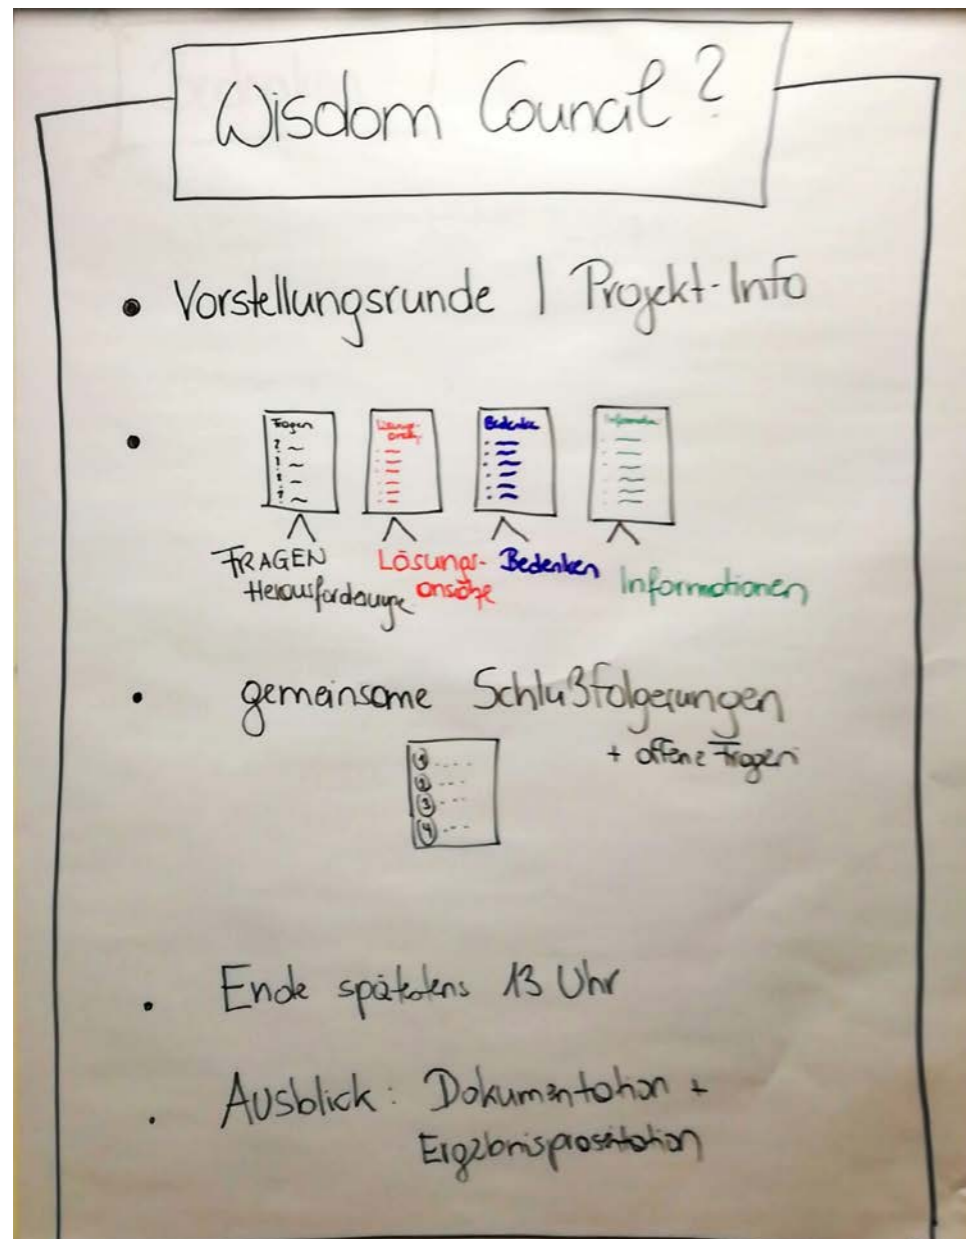 Wisdom Council ?
• Vorstellungsrunde | Projekt-Info
•
Fragen
? ~
! ~
! ~
? ~
Lösungs-
Bedenken
Informationen
FRAGEN
Herausforderunge
Lösungs-
ansätze
Bedenken
Informationen
• gemeinsame Schlußfolgerungen
+ offene Fragen
1 ....
2 ...
3 ...
4 ...
• Ende spätestens 13 Uhr
• Ausblick: Dokumentation +
Ergebnispräsentation